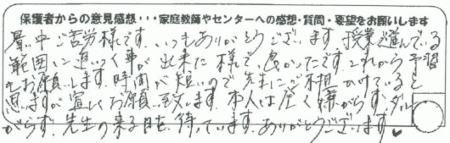 保護者からの意見感想・・・家庭教師やセンターへの感想・質問・要望をお願いします
暑い中ご苦労様です。いつもありがとうございます。授業が進んでいる
範囲に追いつく事が出来た様で良かったです。これからも予習
をお願いします。時間が短いので先生にご相談かけていると
思いますが宜しくお願い致します。本人は全く嫌がらず、ダル
がらず、先生の来る日を待っています。ありがとうございます♥